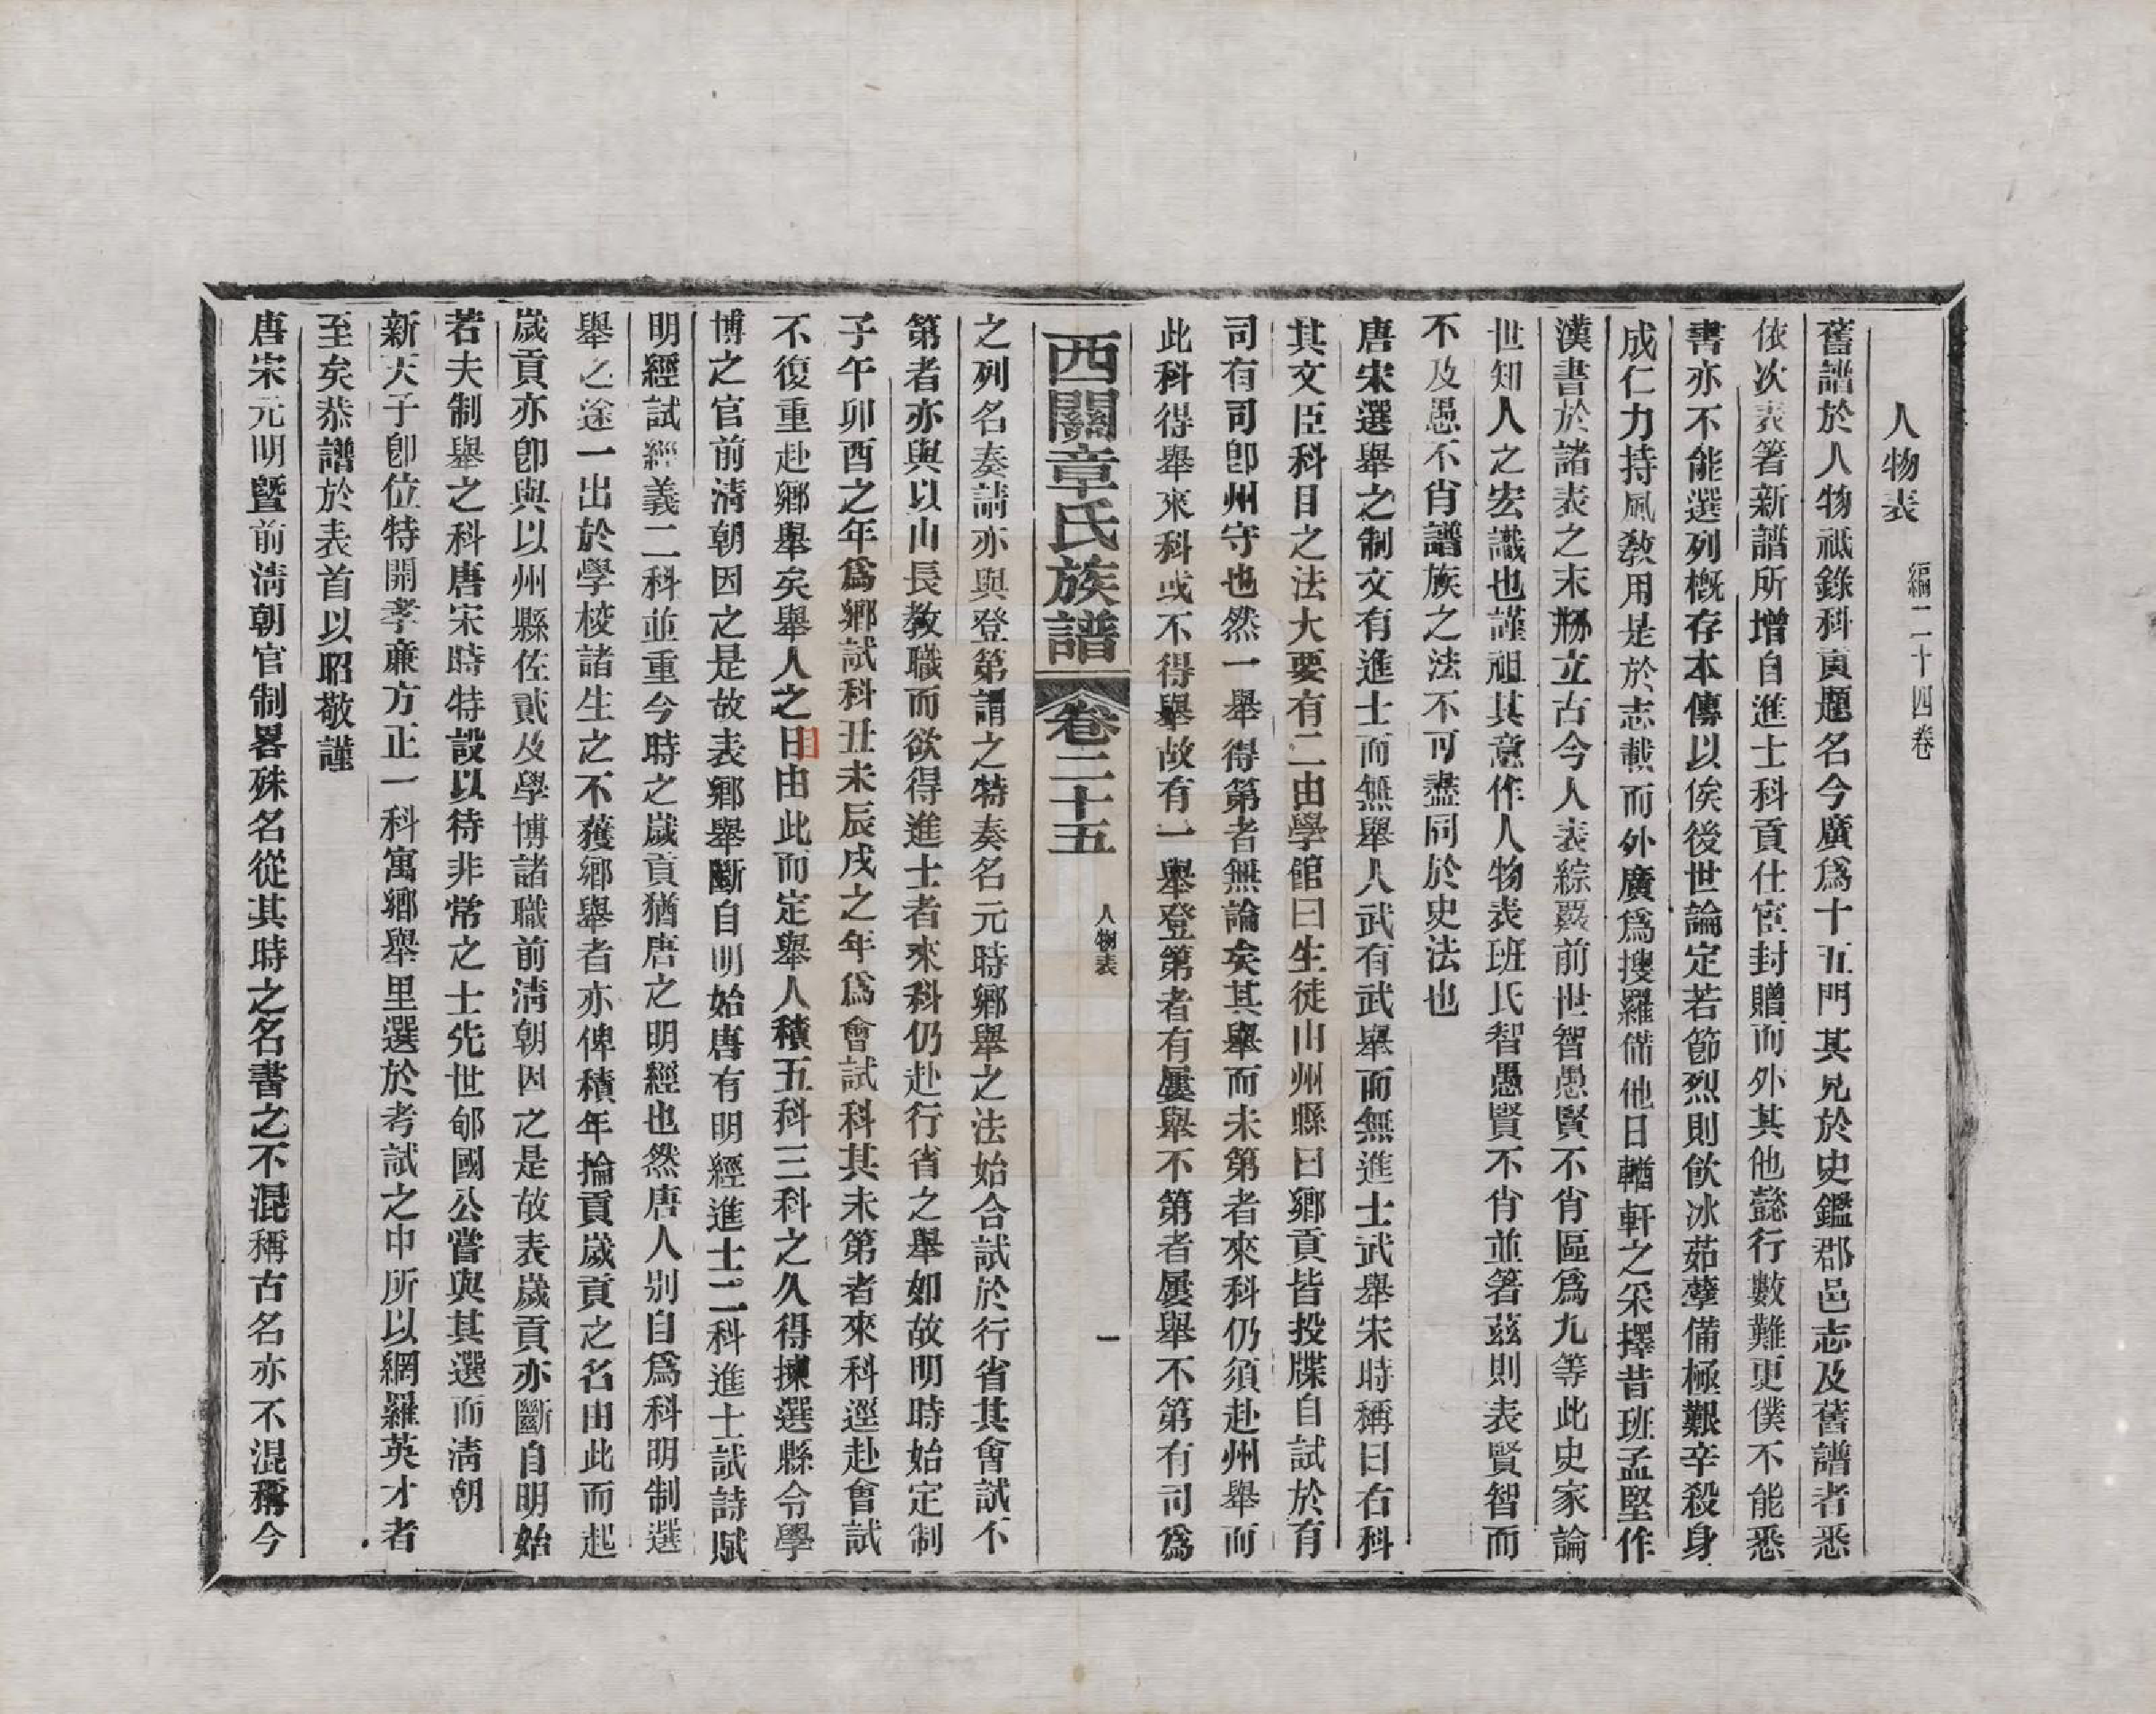 人物表 編二十四卷
舊譜於人物祗錄科貢題名今廣爲十五門其見於史鑑郡邑志及舊譜者悉
依次表箸新譜所增自進士科貢仕宦封贈而外其他懿行數難更僕不能悉
書亦不能選列槪存本傳以俟後世論定若節烈則飮冰茹孽備極艱辛殺身
成仁力持風敎用是於志載而外廣爲搜羅備他日輶軒之采擇昔班孟堅作
漢書於諸表之末剙立古今人表綜覈前世智愚賢不肖區爲九等此史家論
世知人之宏識也謹祖其意作人物表班氏智愚賢不肖並箸茲則表賢智而
不及愚不肖譜族之法不可盡同於史法也
唐宋選舉之制文有進士而無舉人武有武舉而無進士武舉宋時稱曰右科
其文臣科目之法大要有二由學館曰生徒由州縣曰鄕貢皆投牒自試於有
司有司卽州守也然一舉得第者無論矣其舉而未第者來科仍須赴州舉而
此科得舉來科或不得舉故有一舉登第者有屢舉不第者屢舉不第有司爲
西關章氏族譜 卷二十五 人物表 一
之列名奏請亦與登第謂之特奏名元時鄕舉之法始合試於行省其會試不
第者亦與以山長敎職而欲得進士者來科仍赴行省之舉如故明時始定制
子午卯酉之年爲鄕試科丑未辰戌之年爲會試科其未第者來科逕赴會試
不復重赴鄕舉矣舉人之目由此而定舉人積五科三科之久得揀選縣令學
博之官前淸朝因之是故表鄕舉斷自明始唐有明經進士二科進士試詩賦
明經試經義二科並重今時之歲貢猶唐之明經也然唐人別自爲科明制選
舉之途一出於學校諸生之不獲鄕舉者亦俾積年掄貢歲貢之名由此而起
歲貢亦卽與以州縣佐貳及學博諸職前淸朝因之是故表歲貢亦斷自明始
若夫制舉之科唐宋時特設以待非常之士先世郇國公嘗與其選而淸朝
新天子卽位特開孝廉方正一科寓鄕舉里選於考試之中所以網羅英才者
至矣恭譜於表首以昭敬謹
唐宋元明暨前淸朝官制畧殊名從其時之名書之不混稱古名亦不混稱今